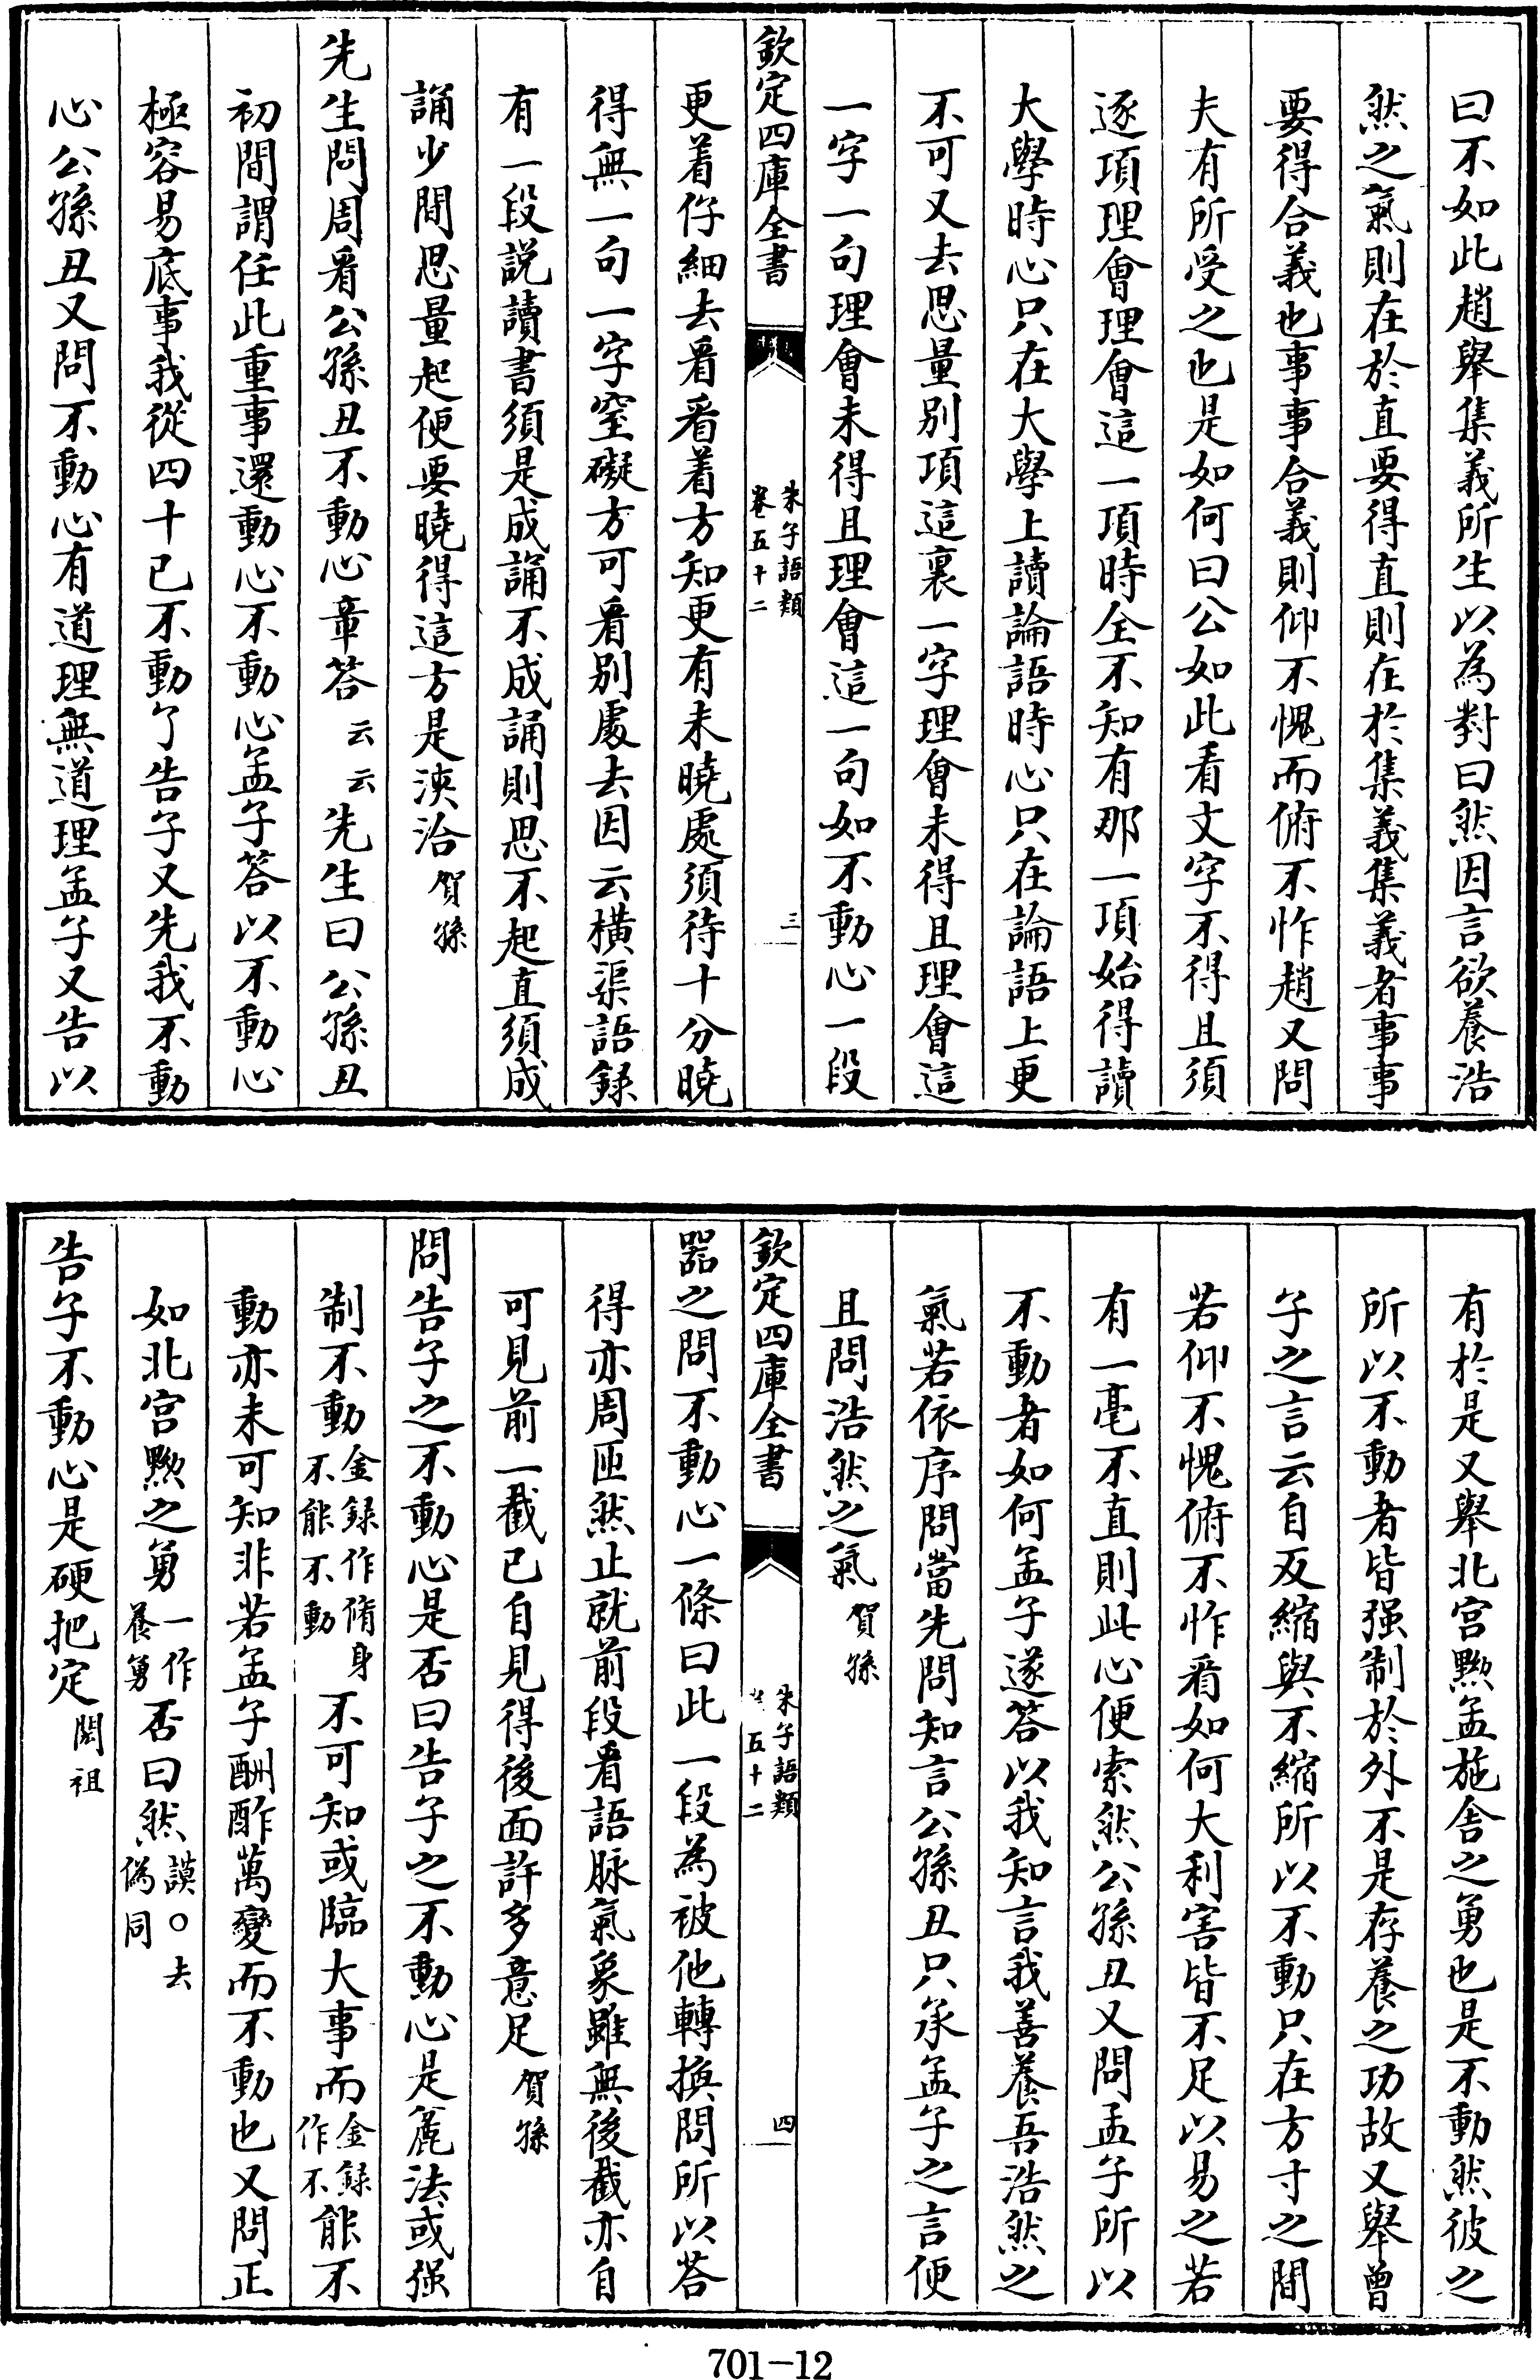 曰不如此趙舉集義所生以為對曰然因言欲養浩
然之氣則在於直要得直則在於集義集義者事事
要得合義也事事合義則仰不愧而俯不怍趙又問
夫有所受之也是如何曰公如此看文字不得且須
逐項理會理會這一項時全不知有那一項始得讀
大學時心只在大學上讀論語時心只在論語上更
不可又去思量别項這裏一字理會未得且理會這
一字一句理會未得且理會這一句如不動心一段
欽定四庫全書
朱子語類
卷五十二
三
更着仔細去看看着方知更有未曉處須待十分曉
得無一句一字窒礙方可看别處去因云横渠語録
有一段説讀書須是成誦不成誦則思不起直須成
誦少間思量起便要曉得這方是浹洽賀孫
先生問周看公孫丑不動心章答云云先生曰公孫丑
初間謂任此重事還動心不動心孟子答以不動心
極容易底事我從四十已不動了告子又先我不動
心公孫丑又問不動心有道理無道理孟子又告以
有於是又舉北宫黝孟施舍之勇也是不動然彼之
所以不動者皆强制於外不是存養之功故又舉曾
子之言云自反縮與不縮所以不動只在方寸之間
若仰不愧俯不怍看如何大利害皆不足以易之若
有一毫不直則此心便索然公孫丑又問孟子所以
不動者如何孟子遂答以我知言我善養吾浩然之
氣若依序問當先問知言公孫丑只承孟子之言便
且問浩然之氣賀孫
欽定四庫全書
朱子語類
五十二
四
器之問不動心一條曰此一段為被他轉換問所以答
得亦周匝然止就前段看語脉氣象雖無後截亦自
可見前一截已自見得後面許多意足賀孫
問告子之不動心是否曰告子之不動心是麄法或强
制不動金録作脩身不能不動不可知或臨大事而金録作不能不
動亦未可知非若孟子酬酢萬變而不動也又問正
如北宫黝之勇一作養勇否曰然謨○去偽同
告子不動心是硬把定閎祖
701-12